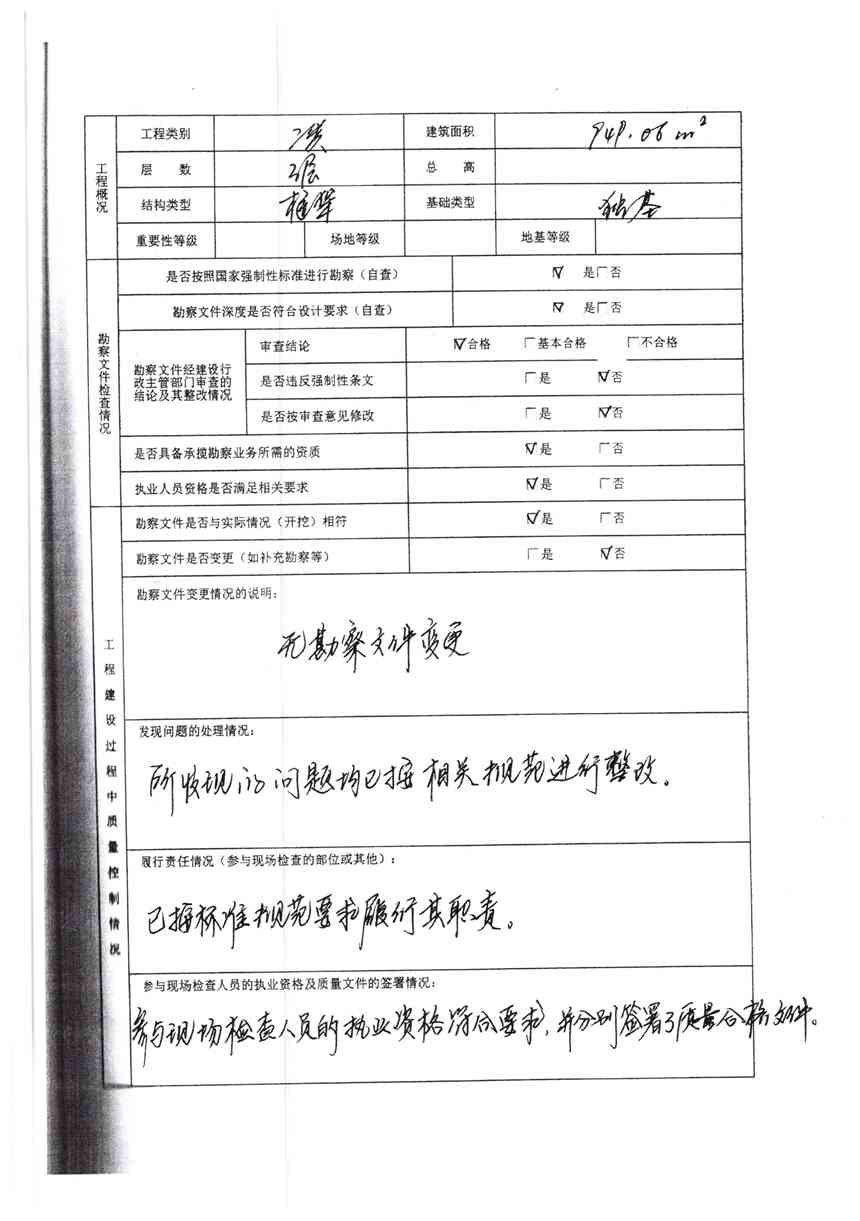 工程概况
工程类别 二类 建筑面积 949.06m²
层 数 2层 总 高
结构类型 框架 基础类型 独基
重要性等级 场地等级 地基等级
勘察文件检查情况
是否按照国家强制性标准进行勘察（自查） ☑是☐否
勘察文件深度是否符合设计要求（自查） ☑是☐否
勘察文件经建设行政主管部门审查的结论及其整改情况
审查结论 ☑合格 ☐基本合格 ☐不合格
是否违反强制性条文 ☐是 ☑否
是否按审查意见修改 ☐是 ☑否
是否具备承揽勘察业务所需的资质 ☑是 ☐否
执业人员资格是否满足相关要求 ☑是 ☐否
工程建设过程中质量控制情况
勘察文件是否与实际情况（开挖）相符 ☑是 ☐否
勘察文件是否变更（如补充勘察等） ☐是 ☑否
勘察文件变更情况的说明：
无勘察文件变更
发现问题的处理情况：
所发现的问题均已按相关规范进行整改。
履行责任情况（参与现场检查的部位或其他）：
已按标准规范要求履行其职责。
参与现场检查人员的执业资格及质量文件的签署情况：
参与现场检查人员的执业资格符合要求，并分别签署了质量合格文件。